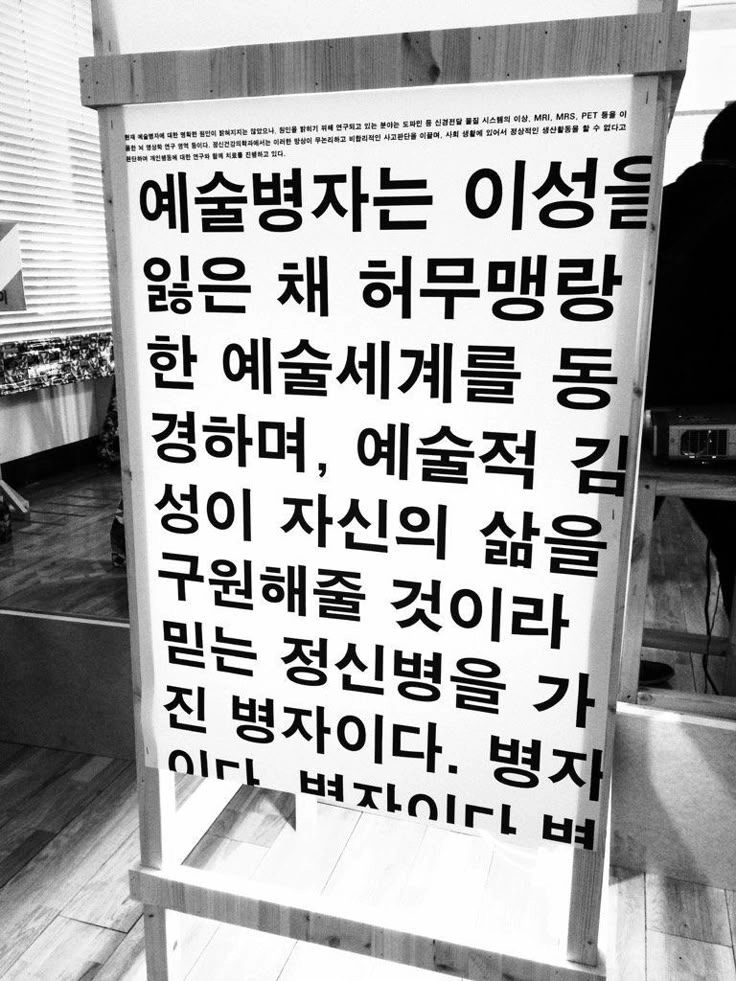 현재 예술병자에 대한 명확한 원인이 밝혀지지는 않았으나, 원인을 밝히기 위해 연구되고 있는 분야는 도파민 등 신경전달 물질 시스템의 이상, MRI, MRS, PET 등을 이
용한 뇌 영상학 연구 영역 등이다. 정신건강의학과에서는 이러한 망상이 무논리하고 비합리적인 사고판단을 이끌며, 사회 생활에 있어서 정상적인 생산활동을 할 수 없다고
판단하여 개인행동에 대한 연구와 함께 치료를 진행하고 있다.
예술병자는 이성을
잃은 채 허무맹랑
한 예술세계를 동
경하며, 예술적 김
성이 자신의 삶을
구원해줄 것이라
믿는 정신병을 가
진 병자이다. 병자
이다. 병자이다 병